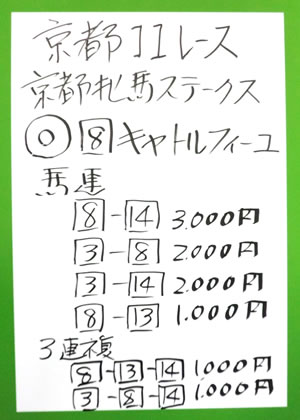 京都11レース
京都牝馬ステークス
◎ 8 キャトルフィーユ
馬連
8-14 3.000円
3-8 2.000円
3-14 2.000円
8-13 1.000円
3連複
8-13-14 1.000円
3-8-14 1.000円